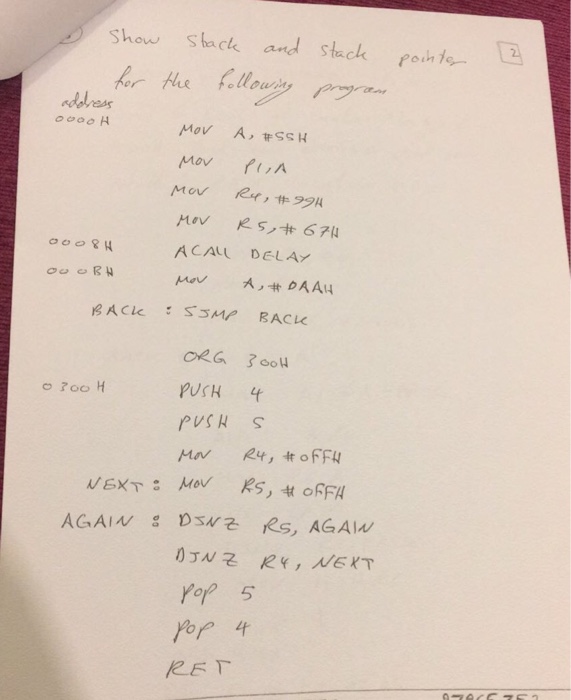 Show stack and stack pointer 2
for the following program
address
0000H MOV A, #55H
MOV P1,A
MOV R4, #99H
MOV R5, #67H
0008H ACALL DELAY
000BH MOV A, #0AAH
BACK : SJMP BACK
ORG 300H
0300H PUSH 4
PUSH 5
MOV R4, #0FFH
NEXT : MOV R5, #0FFH
AGAIN : DJNZ R5, AGAIN
DJNZ R4, NEXT
POP 5
POP 4
RET